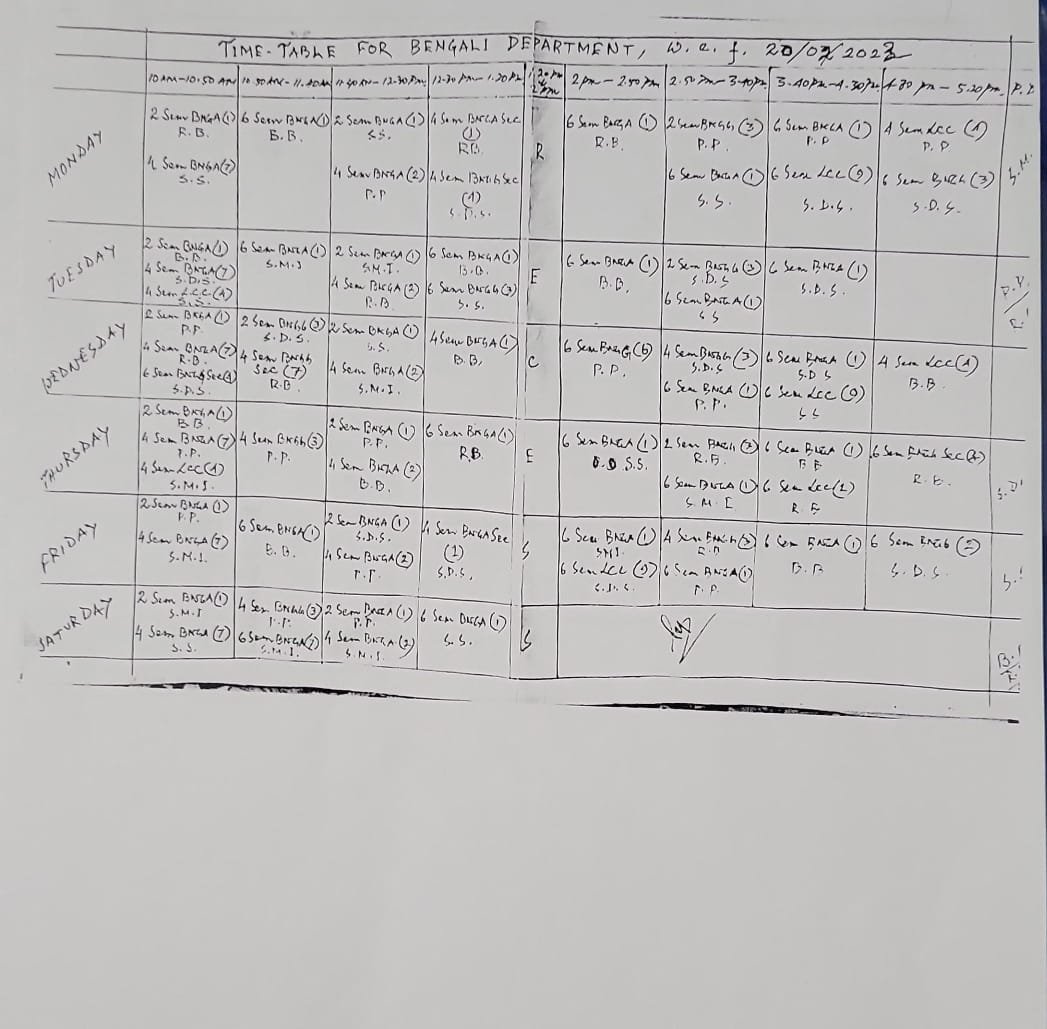 TIME-TABLE FOR BENGALI DEPARTMENT, W.e.f. 20/0 /2023
10 AM-10.50 AM 10.50AM-11.40AM 11.40AM-12.30PM 12.30PM-1.20PM 1.20PM to 2PM 2PM-2.50PM 2.50PM-3.40PM 3.40PM-4.30PM 4.30PM-5.20PM
MONDAY
2 Sem BNGA (1) 6 Sem BNGA (1) 2 Sem BNGA (1) 4 Sem BNGA Sec (1) 6 Sem BNGA (1) 2 Sem BNGG (3) 6 Sem BNGA (1) 4 Sem LCC (1)
R.B. B.B. S.S. R.B. R R.B. P.P. P.P P.P
4 Sem BNGA (7) 4 Sem BNGA (2) 4 Sem BNGG Sec (1) 6 Sem BNGA (1) 6 Sem LCC (9) 6 Sem BNGG (3)
S.S. P.P S.D.S. S.S. S.D.S. S.D.S.
S.M.
TUESDAY
2 Sem BNGA (1) 6 Sem BNGA (1) 2 Sem BNGA (1) 6 Sem BNGA (1) 6 Sem BNGA (1) 2 Sem BNGG (3) 6 Sem BNGA (1)
B.B. S.M.I S.M.I. B.B. E B.B. S.D.S S.D.S.
4 Sem BNGA (7) 4 Sem BNGA (2) 6 Sem BNGG (3) 6 Sem BNGA (1)
S.D.S. R.B S.S. S.S
4 Sem L.C.C (1)
S.S.
WEDNESDAY
2 Sem BNGA (1) 2 Sem BNGG (3) 2 Sem BNGA (1) 4 Sem BNGA (1) 6 Sem BNGG (6) 4 Sem BNGG (3) 6 Sem BNGA (1) 4 Sem LCC (1)
P.P. S.D.S. S.S. B.B. C P.P. S.D.S S.D.S B.B.
4 Sem BNGA (7) 4 Sem BNGG Sec (7) 4 Sem BNGA (2) 6 Sem BNGA (1) 6 Sem LCC (9)
R.B. R.B. S.M.I. P.P. S.S
6 Sem BNGG Sec
S.D.S.
THURSDAY
2 Sem BNGA (1) 4 Sem BNGG (3) 2 Sem BNGA (1) 6 Sem BNGA (1) 6 Sem BNGA (1) 2 Sem BNGG 6 Sem BNGA (1) 6 Sem BNGG Sec
B.B. P.P. P.P. R.B. E S.S. R.B. R.B.
4 Sem BNGA (7) 4 Sem BNGA (2) 6 Sem BNGA (1) 6 Sem LCC
P.P. B.B. S.M.I
4 Sem LCC (1)
S.M.I.
FRIDAY
2 Sem BNGA (1) 6 Sem BNGA (1) 2 Sem BNGA (1) 4 Sem BNGA Sec (1) 6 Sem BNGA (1) 4 Sem BNGG 6 Sem BNGA (1) 6 Sem BNGG
P.P. B.B. S.D.S. S.D.S. S SMI. B.B S.D.S.
4 Sem BNGA (7) 4 Sem BNGA (2) 6 Sem LCC (9) 6 Sem BNGA (1)
S.M.I. P.P. S.D.S. P.P.
SATURDAY
2 Sem BNGA (1) 4 Sem BNGG (3) 2 Sem BNGA (1) 6 Sem BNGA (1) S
S.M.I P.P. P.P. S.S.
4 Sem BNGA (7) 6 Sem BNGA 4 Sem BNGA (2)
S.S. S.M.I. S.M.I.